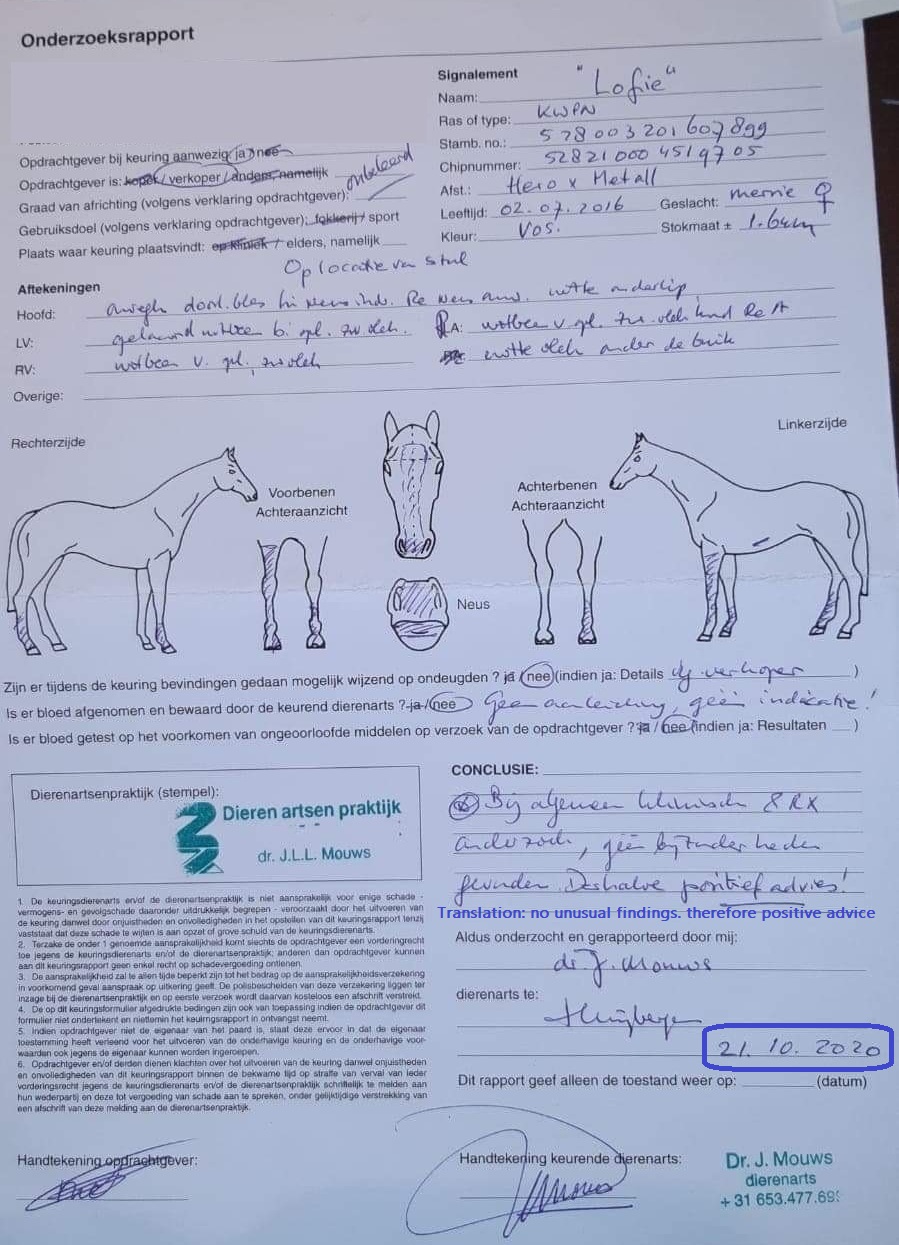 Onderzoeksrapport
Opdrachtgever bij keuring aanwezig: ja / nee
Opdrachtgever is: koper / verkoper / anders, namelijk
Graad van africhting (volgens verklaring opdrachtgever): onbeleerd
Gebruiksdoel (volgens verklaring opdrachtgever): fokkerij / sport
Plaats waar keuring plaatsvindt: op kliniek / elders, namelijk
Op locatie van stal
Signalement
Naam: "Lofie"
Ras of type: KWPN
Stamb. no.: 528003201607899
Chipnummer: 528210004519705
Afst.: Hero x Metall
Leeftijd: 02.07.2016 Geslacht: merrie ♀
Kleur: Vos. Stokmaat ± 1.64m
Aftekeningen
Hoofd: onregm doorl. bles witte onderlip
LV:
RV: witbeen v.
A: witbeen v.
witte vlek onder de buik
Overige:
Rechterzijde
Linkerzijde
Voorbenen
Achteraanzicht
Achterbenen
Achteraanzicht
Neus
Zijn er tijdens de keuring bevindingen gedaan mogelijk wijzend op ondeugden ? ja (nee) (indien ja: Details verkoper )
Is er bloed afgenomen en bewaard door de keurend dierenarts ? ja / nee Geen aanleiding, géén indicatie!
Is er bloed getest op het voorkomen van ongeoorloofde middelen op verzoek van de opdrachtgever ? ja / nee (indien ja: Resultaten )
Dierenartsenpraktijk (stempel):
Dieren artsen praktijk
dr. J.L.L. Mouws
CONCLUSIE:
Bij algemeen klinisch & RX
onderzoek, géén bijzonderheden
gevonden. Deshalve positief advies!
Translation: no unusual findings. therefore positive advice
Aldus onderzocht en gerapporteerd door mij:
dr. J. Mouws
dierenarts te:
21. 10. 2020
Dit rapport geef alleen de toestand weer op: (datum)
1 De keuringsdierenarts en/of de dierenartsenpraktijk is niet aansprakelijk voor enige schade -
vermogens- en gevolgschade daaronder uitdrukkelijk begrepen - veroorzaakt door het uitvoeren van
de keuring danwel door onjuistheden en onvolledigheden in het opstellen van dit keuringsrapport tenzij
vaststaat dat deze schade te wijten is aan opzet of grove schuld van de keuringsdierenarts.
2. Terzake de onder 1 genoemde aansprakelijkheid komt slechts de opdrachtgever een vorderingrecht
toe jegens de keuringsdierenarts en/of de dierenartsenpraktijk; anderen dan opdrachtgever kunnen
aan dit keuringsrapport geen enkel recht op schadevergoeding ontlenen.
3. De aansprakelijkheid zal te allen tijde beperkt zijn tot het bedrag op de aansprakelijkheidsverzekering
in voorkomend geval aanspraak op uitkering geeft. De polisbescheiden van deze verzekering liggen ter
inzage bij de dierenartsenpraktijk en op eerste verzoek wordt daarvan kosteloos een afschrift verstrekt.
4. De op dit keuringsformulier afgedrukte bedingen zijn ook van toepassing indien de opdrachtgever dit
formulier niet ondertekent en niettemin het keuringsrapport in ontvangst neemt.
5. Indien opdrachtgever niet de eigenaar van het paard is, staat deze ervoor in dat de eigenaar
toestemming heeft verleend voor het uitvoeren van de onderhavige keuring en de onderhavige voor-
waarden ook jegens de eigenaar kunnen worden ingeroepen.
6. Opdrachtgever en/of derden dienen klachten over het uitvoeren van de keuring danwel onjuistheden
en onvolledigheden van dit keuringsrapport binnen de bekwame tijd op straffe van verval van ieder
vorderingsrecht jegens de keuringsdierenarts en/of de dierenartsenpraktijk schriftelijk te melden aan
hun wederpartij en deze tot vergoeding van schade aan te spreken, onder gelijktijdige verstrekking van
een afschrift van deze melding aan de dierenartsenpraktijk.
Handtekening opdrachtgever:
Handtekening keurende dierenarts:
Dr. J. Mouws
dierenarts
+ 31 653.477.69